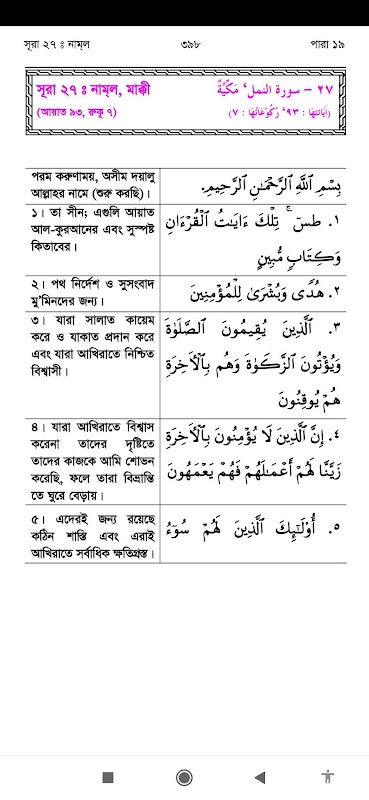 সূরা ২৭ ঃ নাম্‌ল ৩৯৮ পারা ১৯
সূরা ২৭ ঃ নাম্‌ল, মাক্কী
(আয়াত ৯৩, রুকূ ৭)
٢٧ – سورة النمل، مَكِّيَّةٌ
(اَيَاتُهَا : ٩٣، رُكُوْعَاتُهَا : ٧)
পরম করুণাময়, অসীম দয়ালু
আল্লাহর নামে (শুরু করছি)।
بِسْمِ ٱللَّهِ ٱلرَّحْمَـٰنِ ٱلرَّحِيمِ.
১। তা সীন; এগুলি আয়াত
আল-কুরআনের এবং সুস্পষ্ট
কিতাবের।
١. طسٓ ۚ تِلْكَ ءَايَـٰتُ ٱلْقُرْءَانِ
وَكِتَابٍ مُّبِينٍ
২। পথ নির্দেশ ও সুসংবাদ
মু’মিনদের জন্য।
٢. هُدًى وَبُشْرَىٰ لِلْمُؤْمِنِينَ
৩। যারা সালাত কায়েম
করে ও যাকাত প্রদান করে
এবং যারা আখিরাতে নিশ্চিত
বিশ্বাসী।
٣. ٱلَّذِينَ يُقِيمُونَ ٱلصَّلَوٰةَ
وَيُؤْتُونَ ٱلزَّكَوٰةَ وَهُم بِٱلْأَخِرَةِ
هُمْ يُوقِنُونَ
৪। যারা আখিরাতে বিশ্বাস
করেনা তাদের দৃষ্টিতে
তাদের কাজকে আমি শোভন
করেছি, ফলে তারা বিভ্রান্তি
তে ঘুরে বেড়ায়।
٤. إِنَّ ٱلَّذِينَ لَا يُؤْمِنُونَ بِٱلْأَخِرَةِ
زَيَّنَّا لَهُمْ أَعْمَـٰلَهُمْ فَهُمْ يَعْمَهُونَ
৫। এদেরই জন্য রয়েছে
কঠিন শাস্তি এবং এরাই
আখিরাতে সর্বাধিক ক্ষতিগ্রস্ত।
٥. أُوْلَـٰٓئِكَ ٱلَّذِينَ لَهُمْ سُوٓءُ